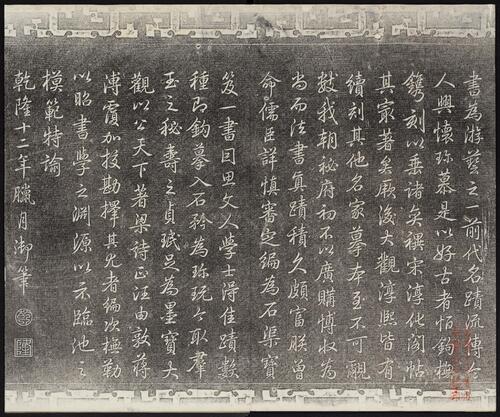 書為游藝之一前代名蹟流傳令
人興懷珍慕是以好古者恒鈎橅
鐫刻以垂諸奕禩宋淳化閣帖
其最著矣厥後大觀淳熙皆有
續刻其他名家摹本至不可覼
數我朝秘府初不以廣購博收為
尚而法書真蹟積久頗富朕曾
命儒臣詳慎審定編為石渠寶
笈一書因思文人學士得佳蹟數
種即鈎摹入石矜為珍玩今取羣
玉之秘壽之貞珉足為墨寶大
觀以公天下著梁詩正汪由敦蔣
溥覆加校勘擇其尤者編次橅勒
以昭書學之淵源以示臨池之
模範特諭
乾隆十二年臘月御筆